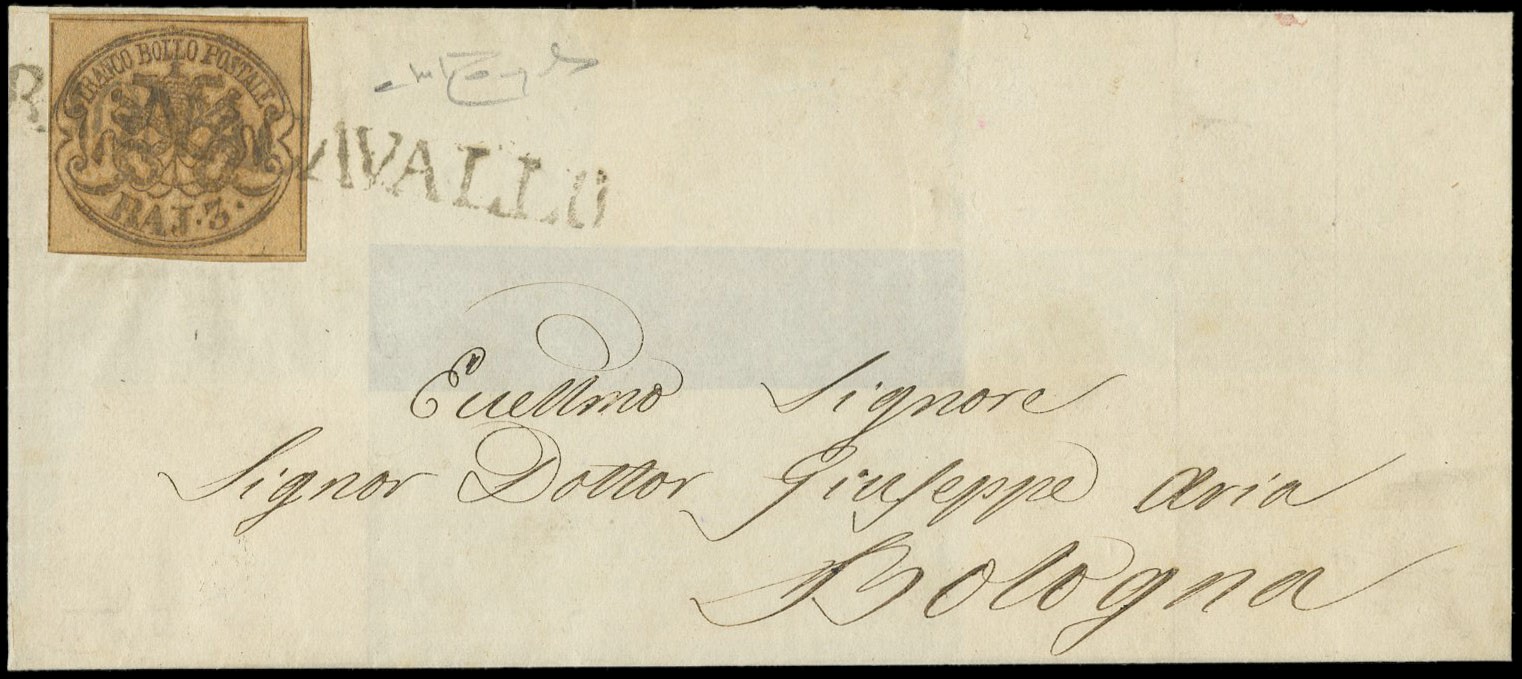 FRANCO BOLLO POSTALE
RAJ. 3.
AVALLO
Eccellmo Signore
Signor Dottor Giuseppe Aria
Bologna